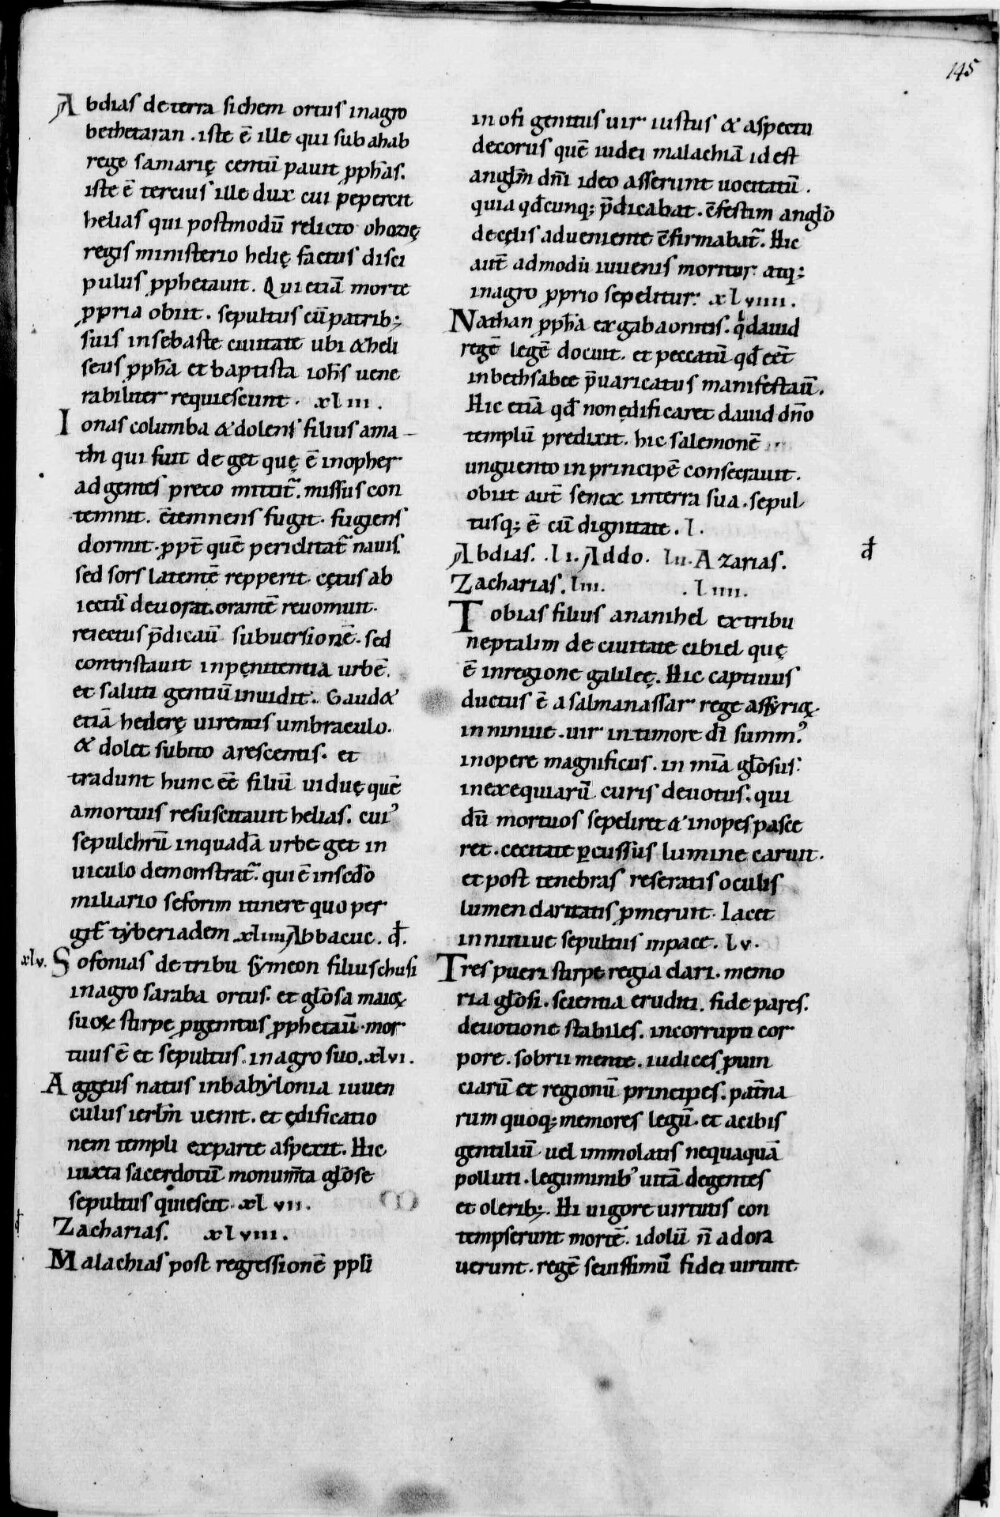 145
Abdias de terra sichem ortus in agro
bethetaran . iste ē ille qui sub ahab
rege samarię centū pauit ꝓph̄as.
iste ē tercius ille dux cui pepercit
helias qui postmodū relicto ohozię
regis ministerio helię factus disci
pulus ꝓphetauit. Qui etiā morte
ꝓpria obiit . sepultus cū patrib;
suis in sebaste ciuitate ubi & heli
seus ꝓph̄a et baptista ioh̄s uene
rabiliter requiescunt . xliii.
Ionas columba & dolens filius ama
thi qui fuit de get quę ē in opher
ad gentes preco mittit̄. missus con
temnit . c̄temnens fugit . fugiens
dormit . ꝓpt̄ quē periclitat̄ nauis.
sed sors latentē repperit . cętus ab
iectū deuorat . orantē reuomuit .
reiectus p̄dicaū subuersionē . sed
contristauit in pęnitentia urbē.
et saluti gentiū inuidit . Gaud&
etiā hederę uirentis umbraculo.
& dolet subito arescentis . et
tradunt hunc eē filiū uiduę quē
a mortuis resuscitauit helias . cui᾽
sepulchrū in quadā urbe get in
uiculo demonstrat̄. qui ē in sed̄o
miliario seforim itinere quo per
git̄ tyberiadem . xliiii Abbacuc . đ.
xlv. Sofonias de tribu symeon filius chusi
in agro saraba ortus . et gl̄osa maioꝝ
suoꝝ stirpe ꝓgenitus ꝓphetaū . mor
tuus ē et sepultus . in agro suo . xlvi.
Aggeus natus in babylonia iuuen
culus ierl̄m uenit . et ędificatio
nem templi ex parte aspexit . Hic
iuxta sacerdotū monum̄ta gl̄ose
sepultus quiescit . xl vii.
đ Zacharias. xlviii.
Malachias post regressionē ppli
in ofi genitus uir iustus & aspectu
decorus quē iudei malachiā id est
angl̄m dn̄i ideo asserunt uocitatū .
quia qđcunq; p̄dicabat . c̄festim angl̄o
de cęlis adueniente c̄firmabat̄. Hic
aut̄ admodū iuuenis moritur atq;
in agro ꝓprio sepelitur . xl viiii.
Nathan ꝓph̄a ex gabaonitis . q dauid
regē legē docuit . et peccatū qđ eēt
in bethsabee p̄uaricatus manifestaū.
Hic etiā qđ non ędificaret dauid dn̄o
templū predixit . hic salemonē
unguento in principē consecrauit .
obiit aut̄ senex in terra sua . sepul
tusq; ē cū dignitate . l .
Abdias. . li . Addo. lii . Azarias. đ
Zacharias. liii. . liiii.
Tobias filius ananihel ex tribu
neptalim de ciuitate cibiel quę
ē in regione galileę. Hic captiuus
ductus ē a salmanassar rege assyrioꝝ
in niniue . uir in timore dī summ᾽
in opere magnificus . in mīa gl̄osus .
in exequiarū curis deuotus . qui
dū mortuos sepeliret & inopes pasce
ret . cecitate ꝑcussus lumine caruit .
et post tenebras reseratis oculis
lumen claritatis ꝓmeruit . Iacet
in niniue sepultus in pace . lv .
Tres pueri stirpe regia clari . memo
ria gl̄osi . scientia eruditi . fide pares.
deuotione stabiles . incorrupti cor
pore . sobrii mente . iudices puin
ciarū et regionū principes . pat̄na
rum quoq; memores legū . et acibis
gentiliū uel immolatis nequaquā
polluti . leguminib᾽ uitā degentes
et olerib; . Hi uigore uirtutis con
tempserunt mortē . idolū n̄ adora
uerunt . regē seuissimū fidei uirtute